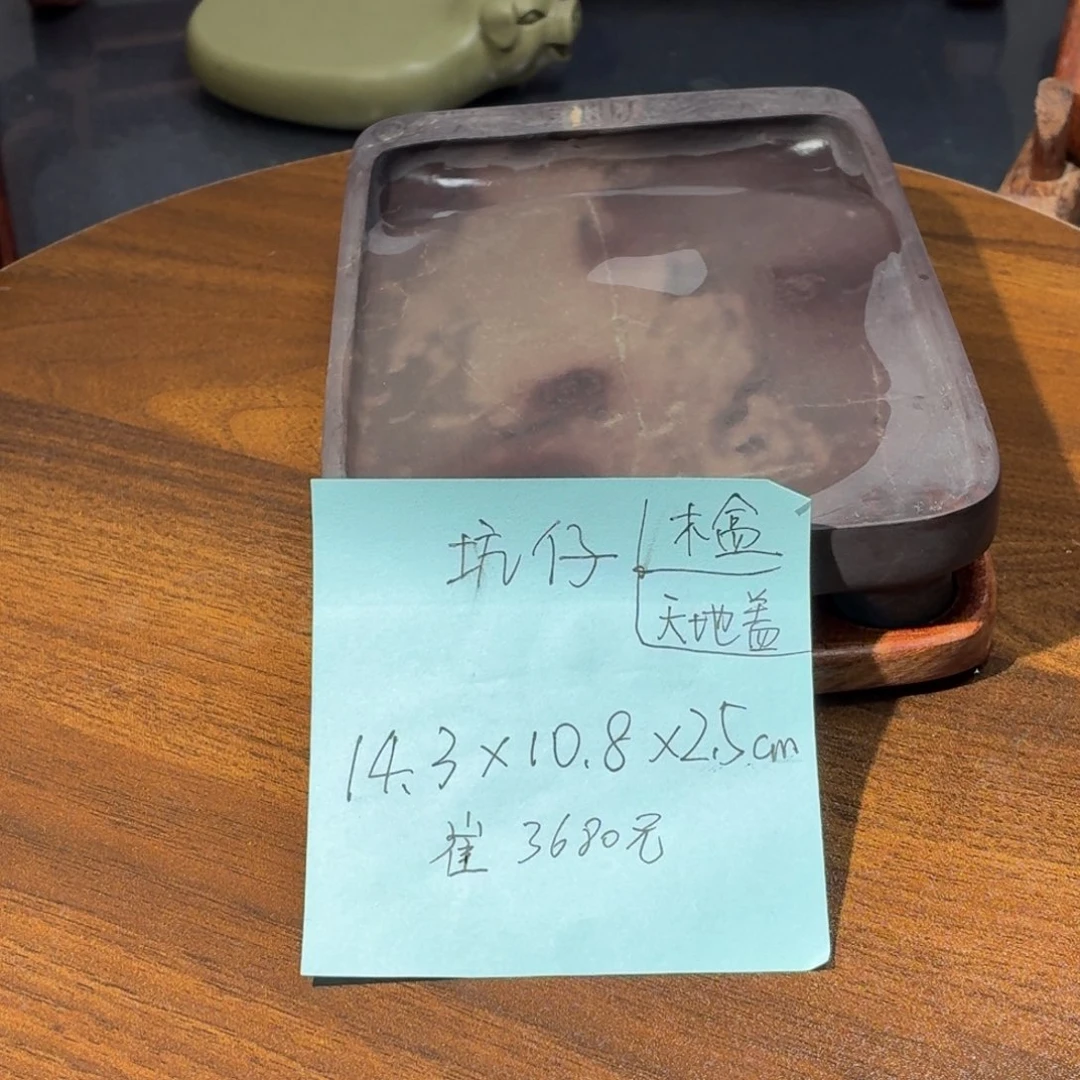 坑仔
木盒
天地盖
14.3×10.8×2.5cm
崔 3680元